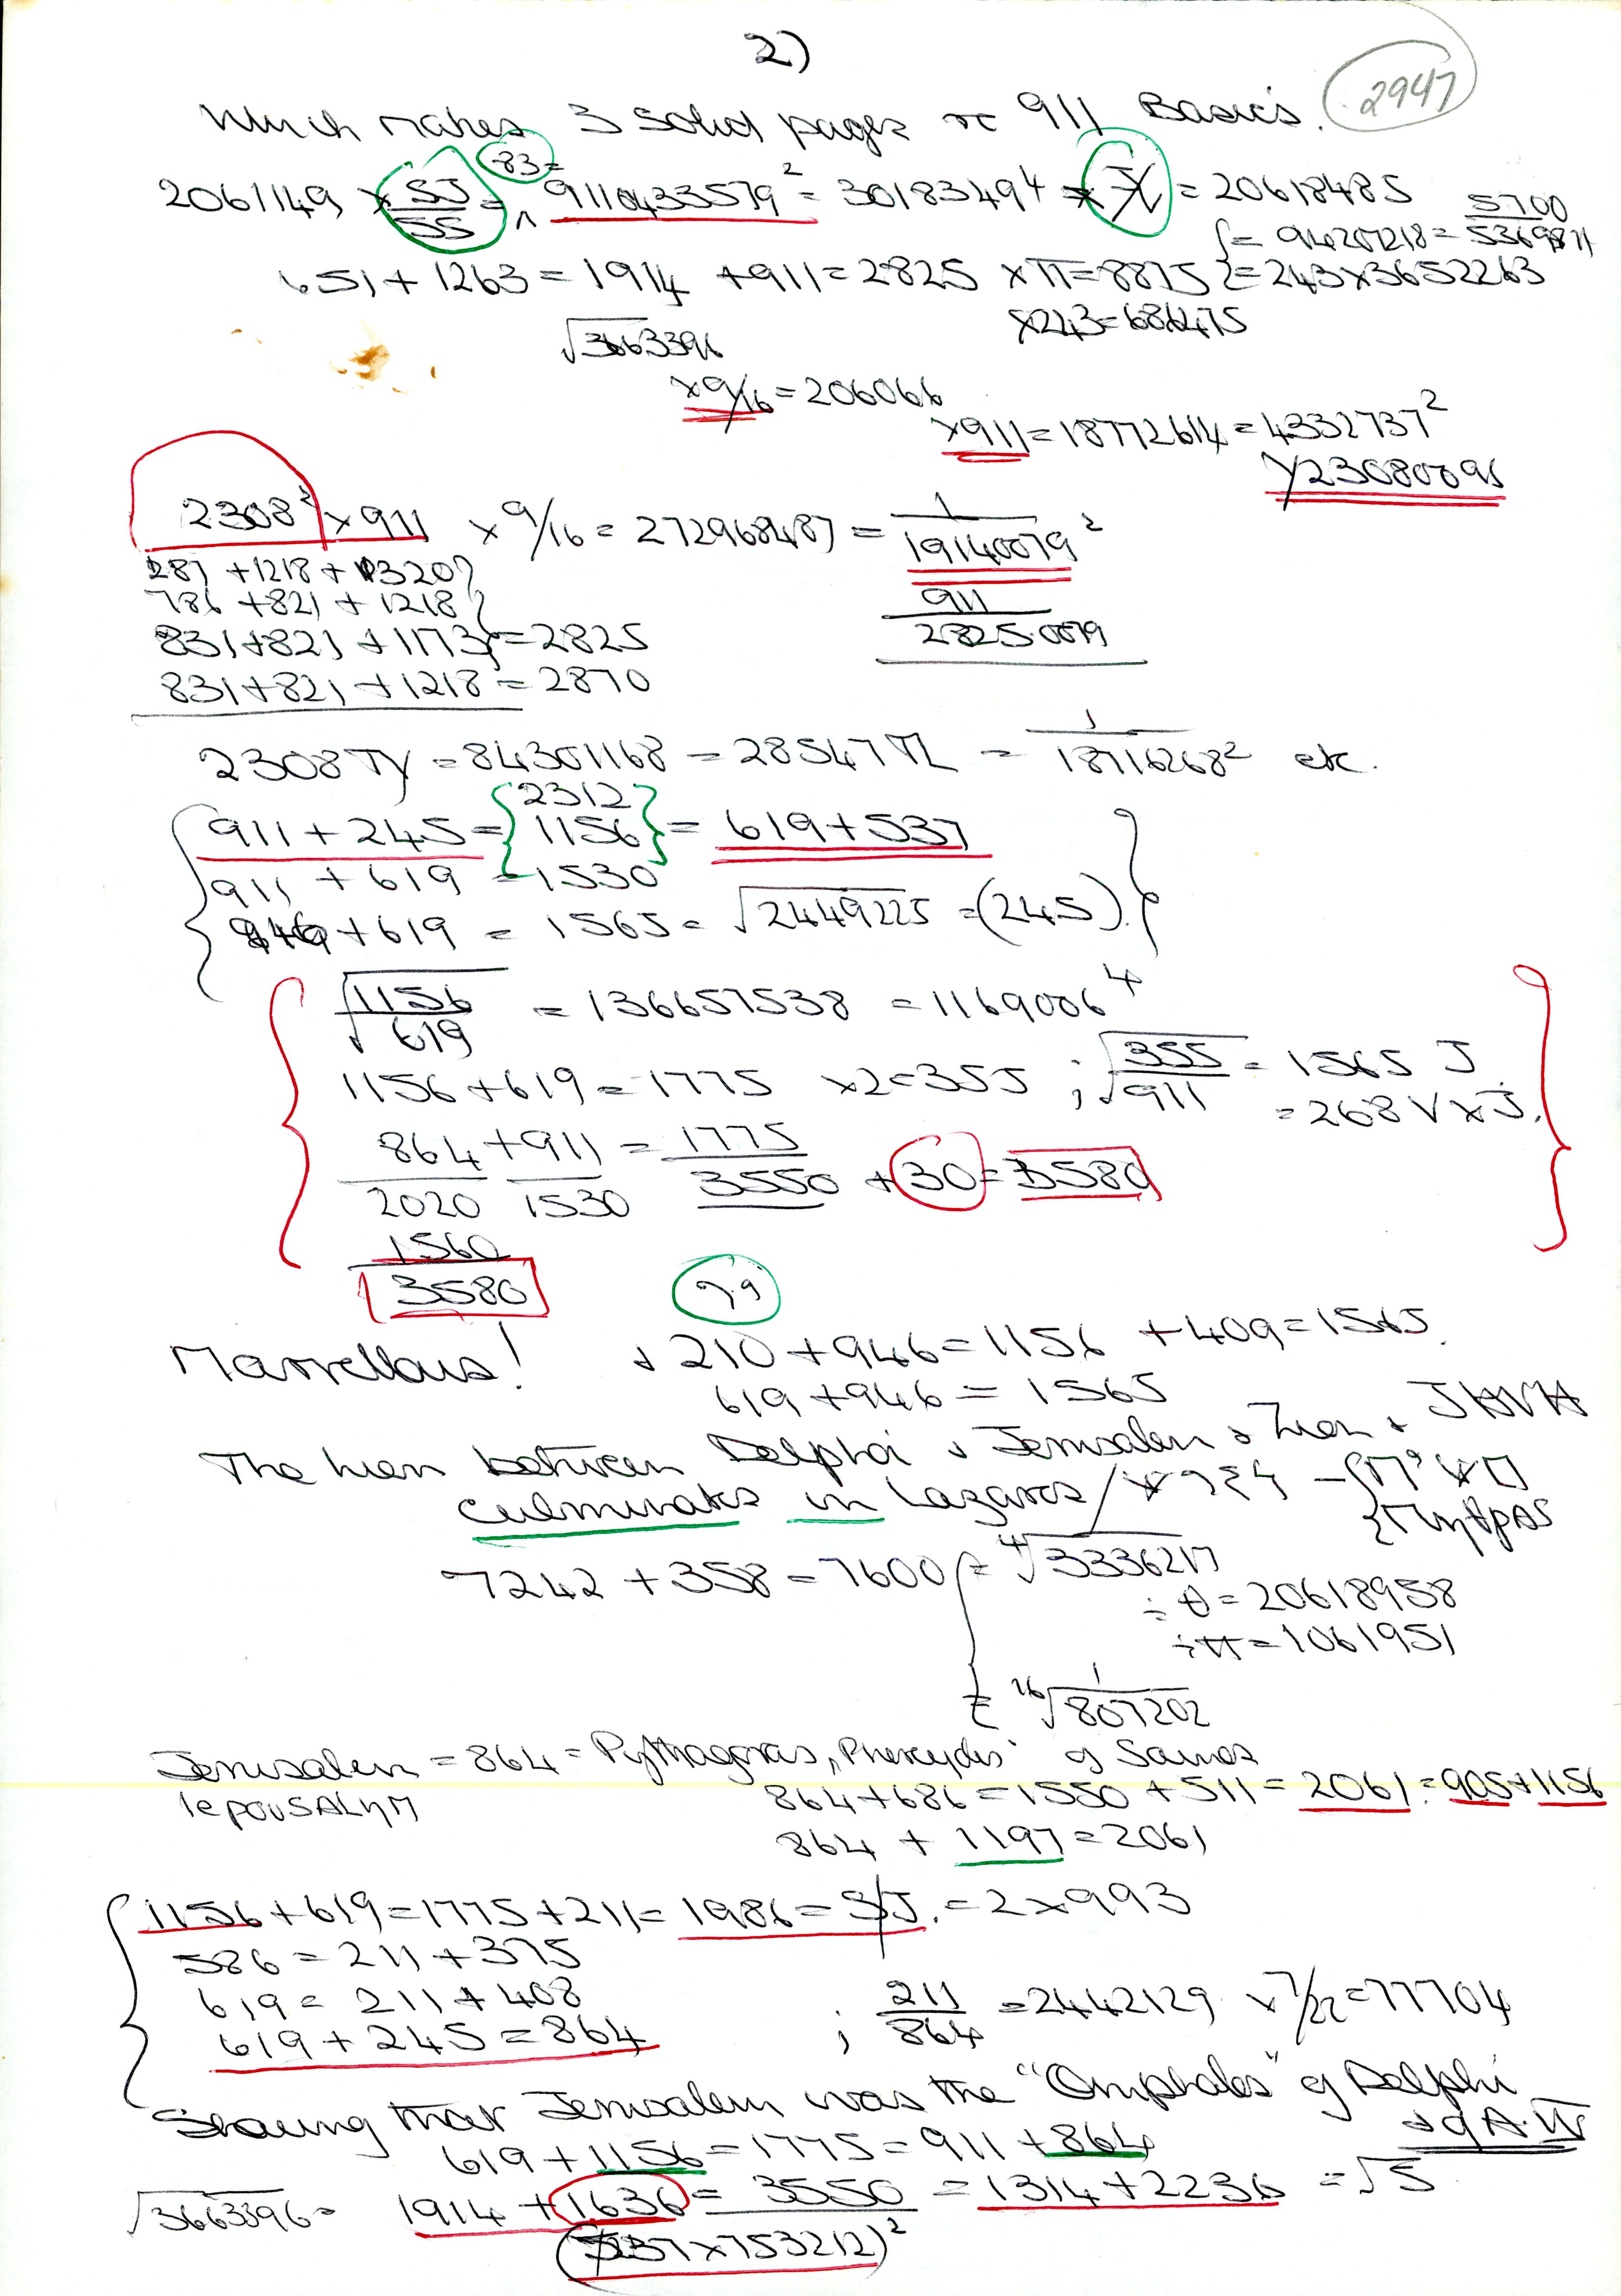 2)
2947
Which makes 3 solid pages re 911 Basics.
83=
2061149 × SJ/SS = 9110433579² = 30183494 × = 20618485
= 914201218 = 5700/5369871
651 + 1263 = 1914 + 911 = 2825 × π = 8875 = 243 × 3652263
× 243 = 686475
√3663396
× 9/16 = 206066
× 911 = 18772614 = 4332737²
Y23080096
2308² × 911 × 9/16 = 272968487 = 1/19140079²
287 + 1218 + 1320
786 + 821 + 1218
831 + 821 + 1173 = 2825
831 + 821 + 1218 = 2870
911
2825.0079
2308 TY = 84301168 = 28547 = 1/18716268² etc.
2312
911 + 245 = 1156 = 619 + 537
911 + 619 = 1530
946 + 619 = 1565 = √2449225 = (245)
√1156/619 = 136657538 = 1169006⁴
1156 + 619 = 1775 × 2 = 355 ; √355/911 = 1565 J
= 268 V × J.
864 + 911 = 1775
2020 1530 3550 + 30 = 3580
1560
3580
Marvellous!
210 + 946 = 1156 + 409 = 1565.
619 + 946 = 1565
The lien between Delphi & Jerusalem &
culminates in Lazarus /
7242 + 358 = 7600 = ⁴√3336217
÷ θ = 20618958
÷ π = 1061951
= ¹⁶√1/807202
Jerusalem = 864 = Pythagoras, Pherecydes of Samos
IepouSALηM
864 + 686 = 1550 + 511 = 2061 = 905 + 1156
864 + 1197 = 2061
1156 + 619 = 1775 + 211 = 1986 = S/J. = 2 × 993
586 = 211 + 375
619 = 211 + 408
619 + 245 = 864
; 211/864 = 2442129 × 7/22 = 77704
Showing that Jerusalem was the "Omphalos" of Delphi
619 + 1156 = 1775 = 911 + 864
√3663396 = 1914 + 1636 = 3550 = 1314 + 2236 = √5
(5237 × 753212)²